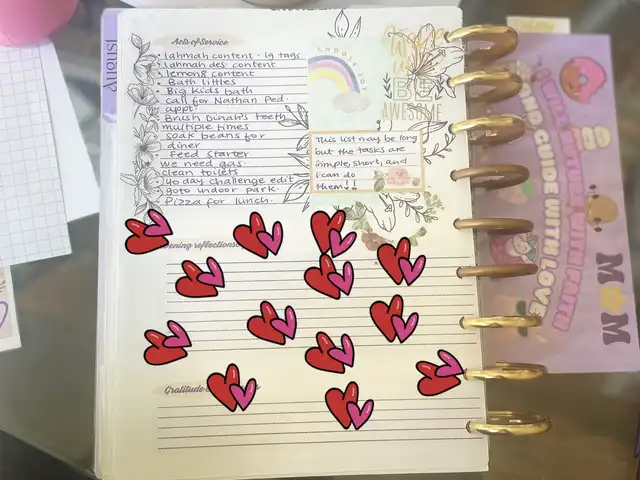 Acts of Service
• lahmah content - ig tags
• lahmah des content
• lemon8 content
• Bath littles
• Big kids bath
• call for Nathan Ped.
appt.
• Brush Dinah's teeth
multiple times
• soak beans for
diner
• Feed starter
we need gas.
clean toilets
• 40 day challenge edit
• goto indoor park.
• Pizza for lunch.
CHOOSE JOY
BE
AWESOME
This list may be long
but the tasks are
simple, short, and
I can do
them!!
ening reflections
Gratitude
August
AND GUIDE WITH LOVE
WITH FAITH
MOM